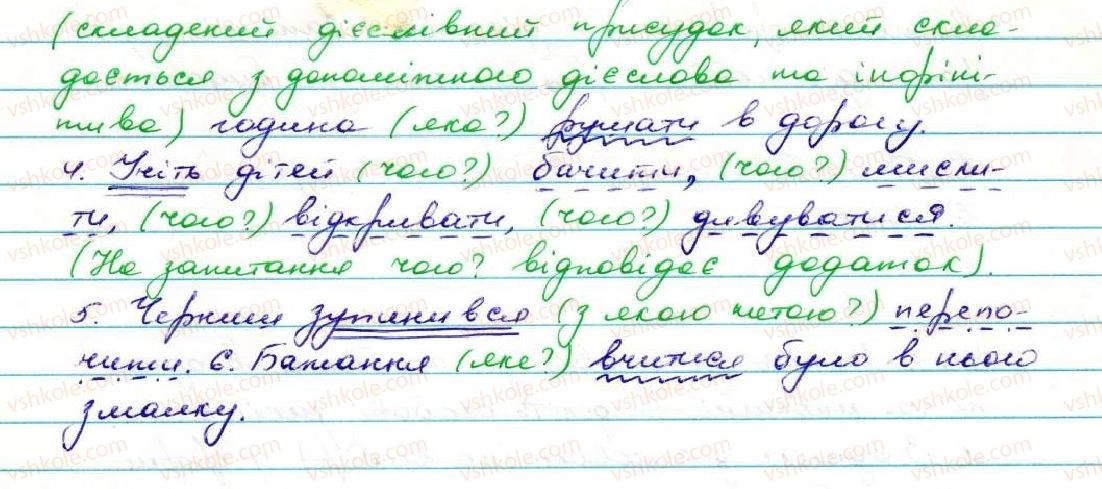 (складений дієслівний присудок, який скла-
дається з допоміжного дієслова та інфіні-
тива) година (яка?) рушати в дорогу.
4. Учіть дітей (чого?) бачити, (чого?) мисли-
ти, (чого?) відкривати, (чого?) дивуватися.
(На запитання чого? відповідає додаток).
5. Черниш зупинився (з якою метою?) перепо-
чити. 6. Бажання (яке?) вчитися було в нього
змалку.